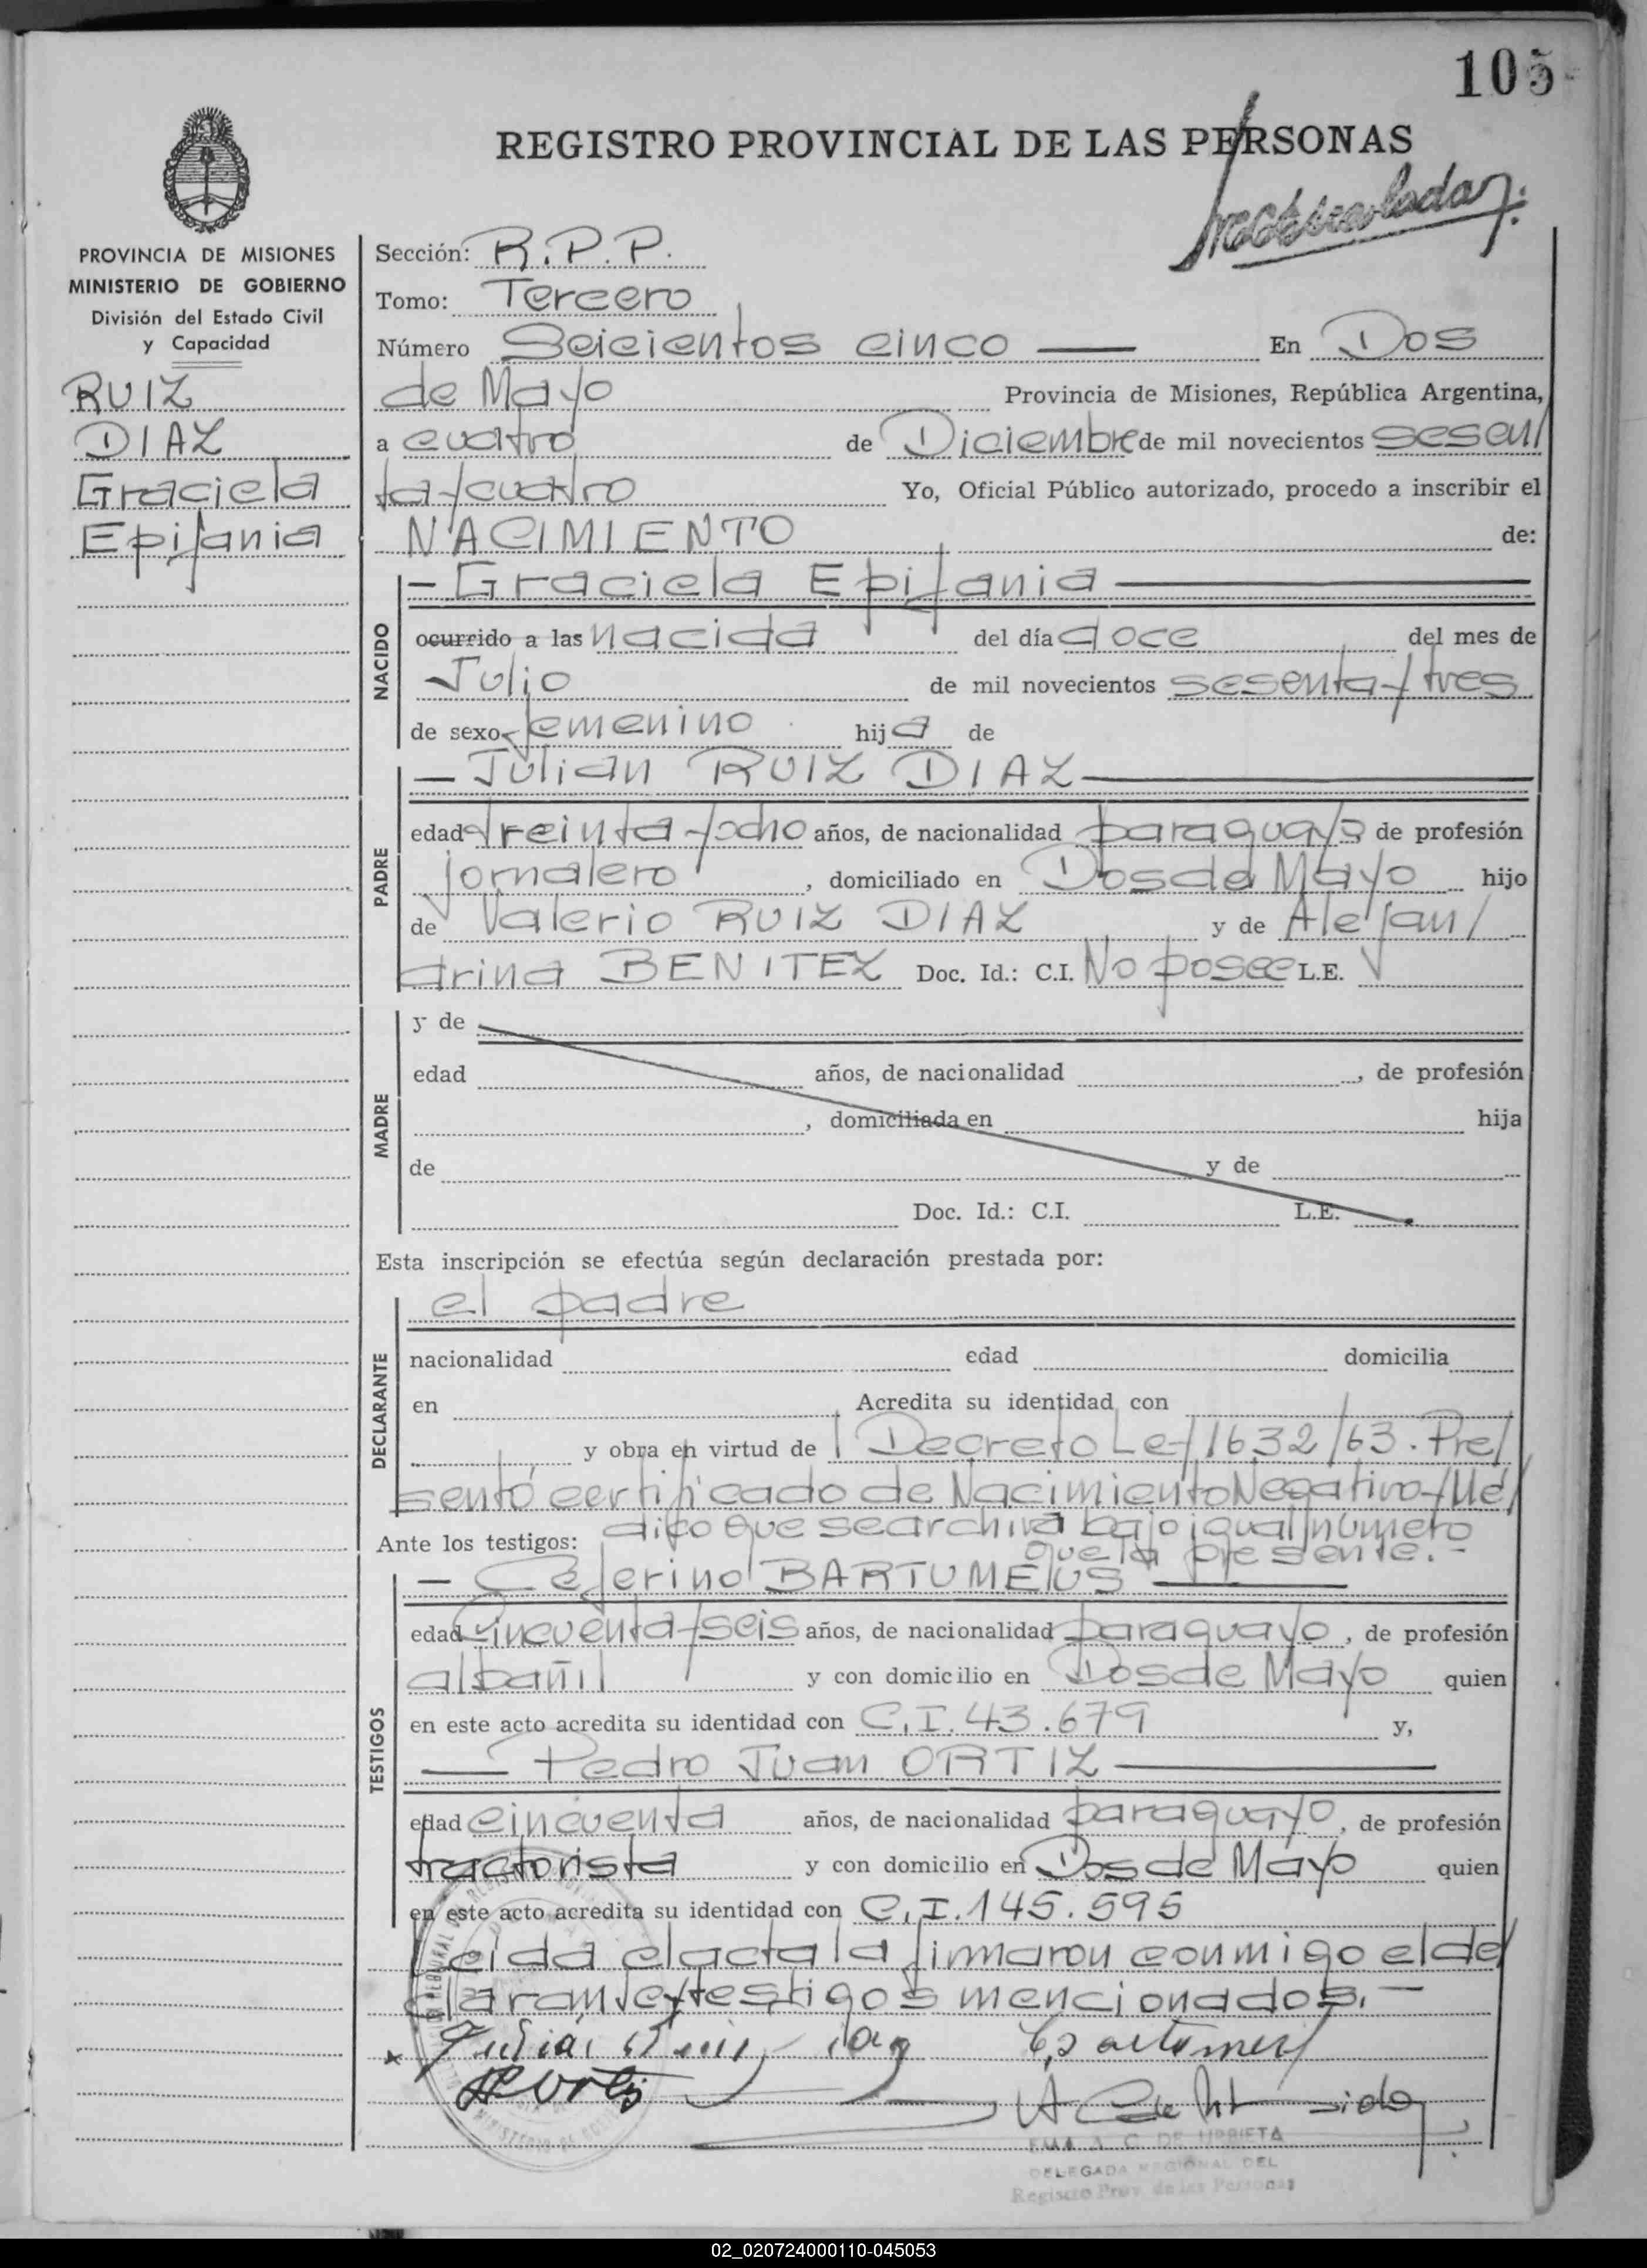 105
REGISTRO PROVINCIAL DE LAS PERSONAS
PROVINCIA DE MISIONES
MINISTERIO DE GOBIERNO
División del Estado Civil
y Capacidad
RUIZ
DIAZ
Graciela
Epifania
Sección: R.P.P.
Tomo: Tercero
Número Seicientos cinco En Dos
de Mayo Provincia de Misiones, República Argentina,
a cuatro de Diciembre de mil novecientos sesen/
ta y cuatro Yo, Oficial Público autorizado, procedo a inscribir el
NACIMIENTO de:
NACIDO
- Graciela Epifania
ocurrido a las nacida del día doce del mes de
Julio de mil novecientos sesenta y tres
de sexo femenino hija de
PADRE
- Julian RUIZ DIAZ
edad treinta y ocho años, de nacionalidad paraguayo de profesión
jornalero, domiciliado en Dos de Mayo hijo
de Valerio RUIZ DIAZ y de Alejan/
drina BENITEZ Doc. Id.: C.I. No posee L.E.
MADRE
y de
edad años, de nacionalidad , de profesión
, domiciliada en hija
de y de
Doc. Id.: C.I. L.E.
Esta inscripción se efectúa según declaración prestada por:
DECLARANTE
el padre
nacionalidad edad domicilia
en Acredita su identidad con
y obra en virtud de Decreto Ley 1632/63. Pre/
sentó certificado de Nacimiento Negativo y Mé/
dico que se archiva bajo igual número
Ante los testigos: que la presente.-
TESTIGOS
- Ceferino BARTUMEUS
edad cincuenta y seis años, de nacionalidad paraguayo, de profesión
albañil y con domicilio en Dos de Mayo quien
en este acto acredita su identidad con C.I. 43.679 y,
Pedro Juan ORTIZ
edad cincuenta años, de nacionalidad paraguayo, de profesión
tractorista y con domicilio en Dos de Mayo quien
en este acto acredita su identidad con C.I. 145.595
Leida el acta la firmaron conmigo el de/
clarante y testigos mencionados.-
DE URRIETA
DELEGADA REGIONAL DEL
Registro Prov. de las Personas
02_020724000110-045053